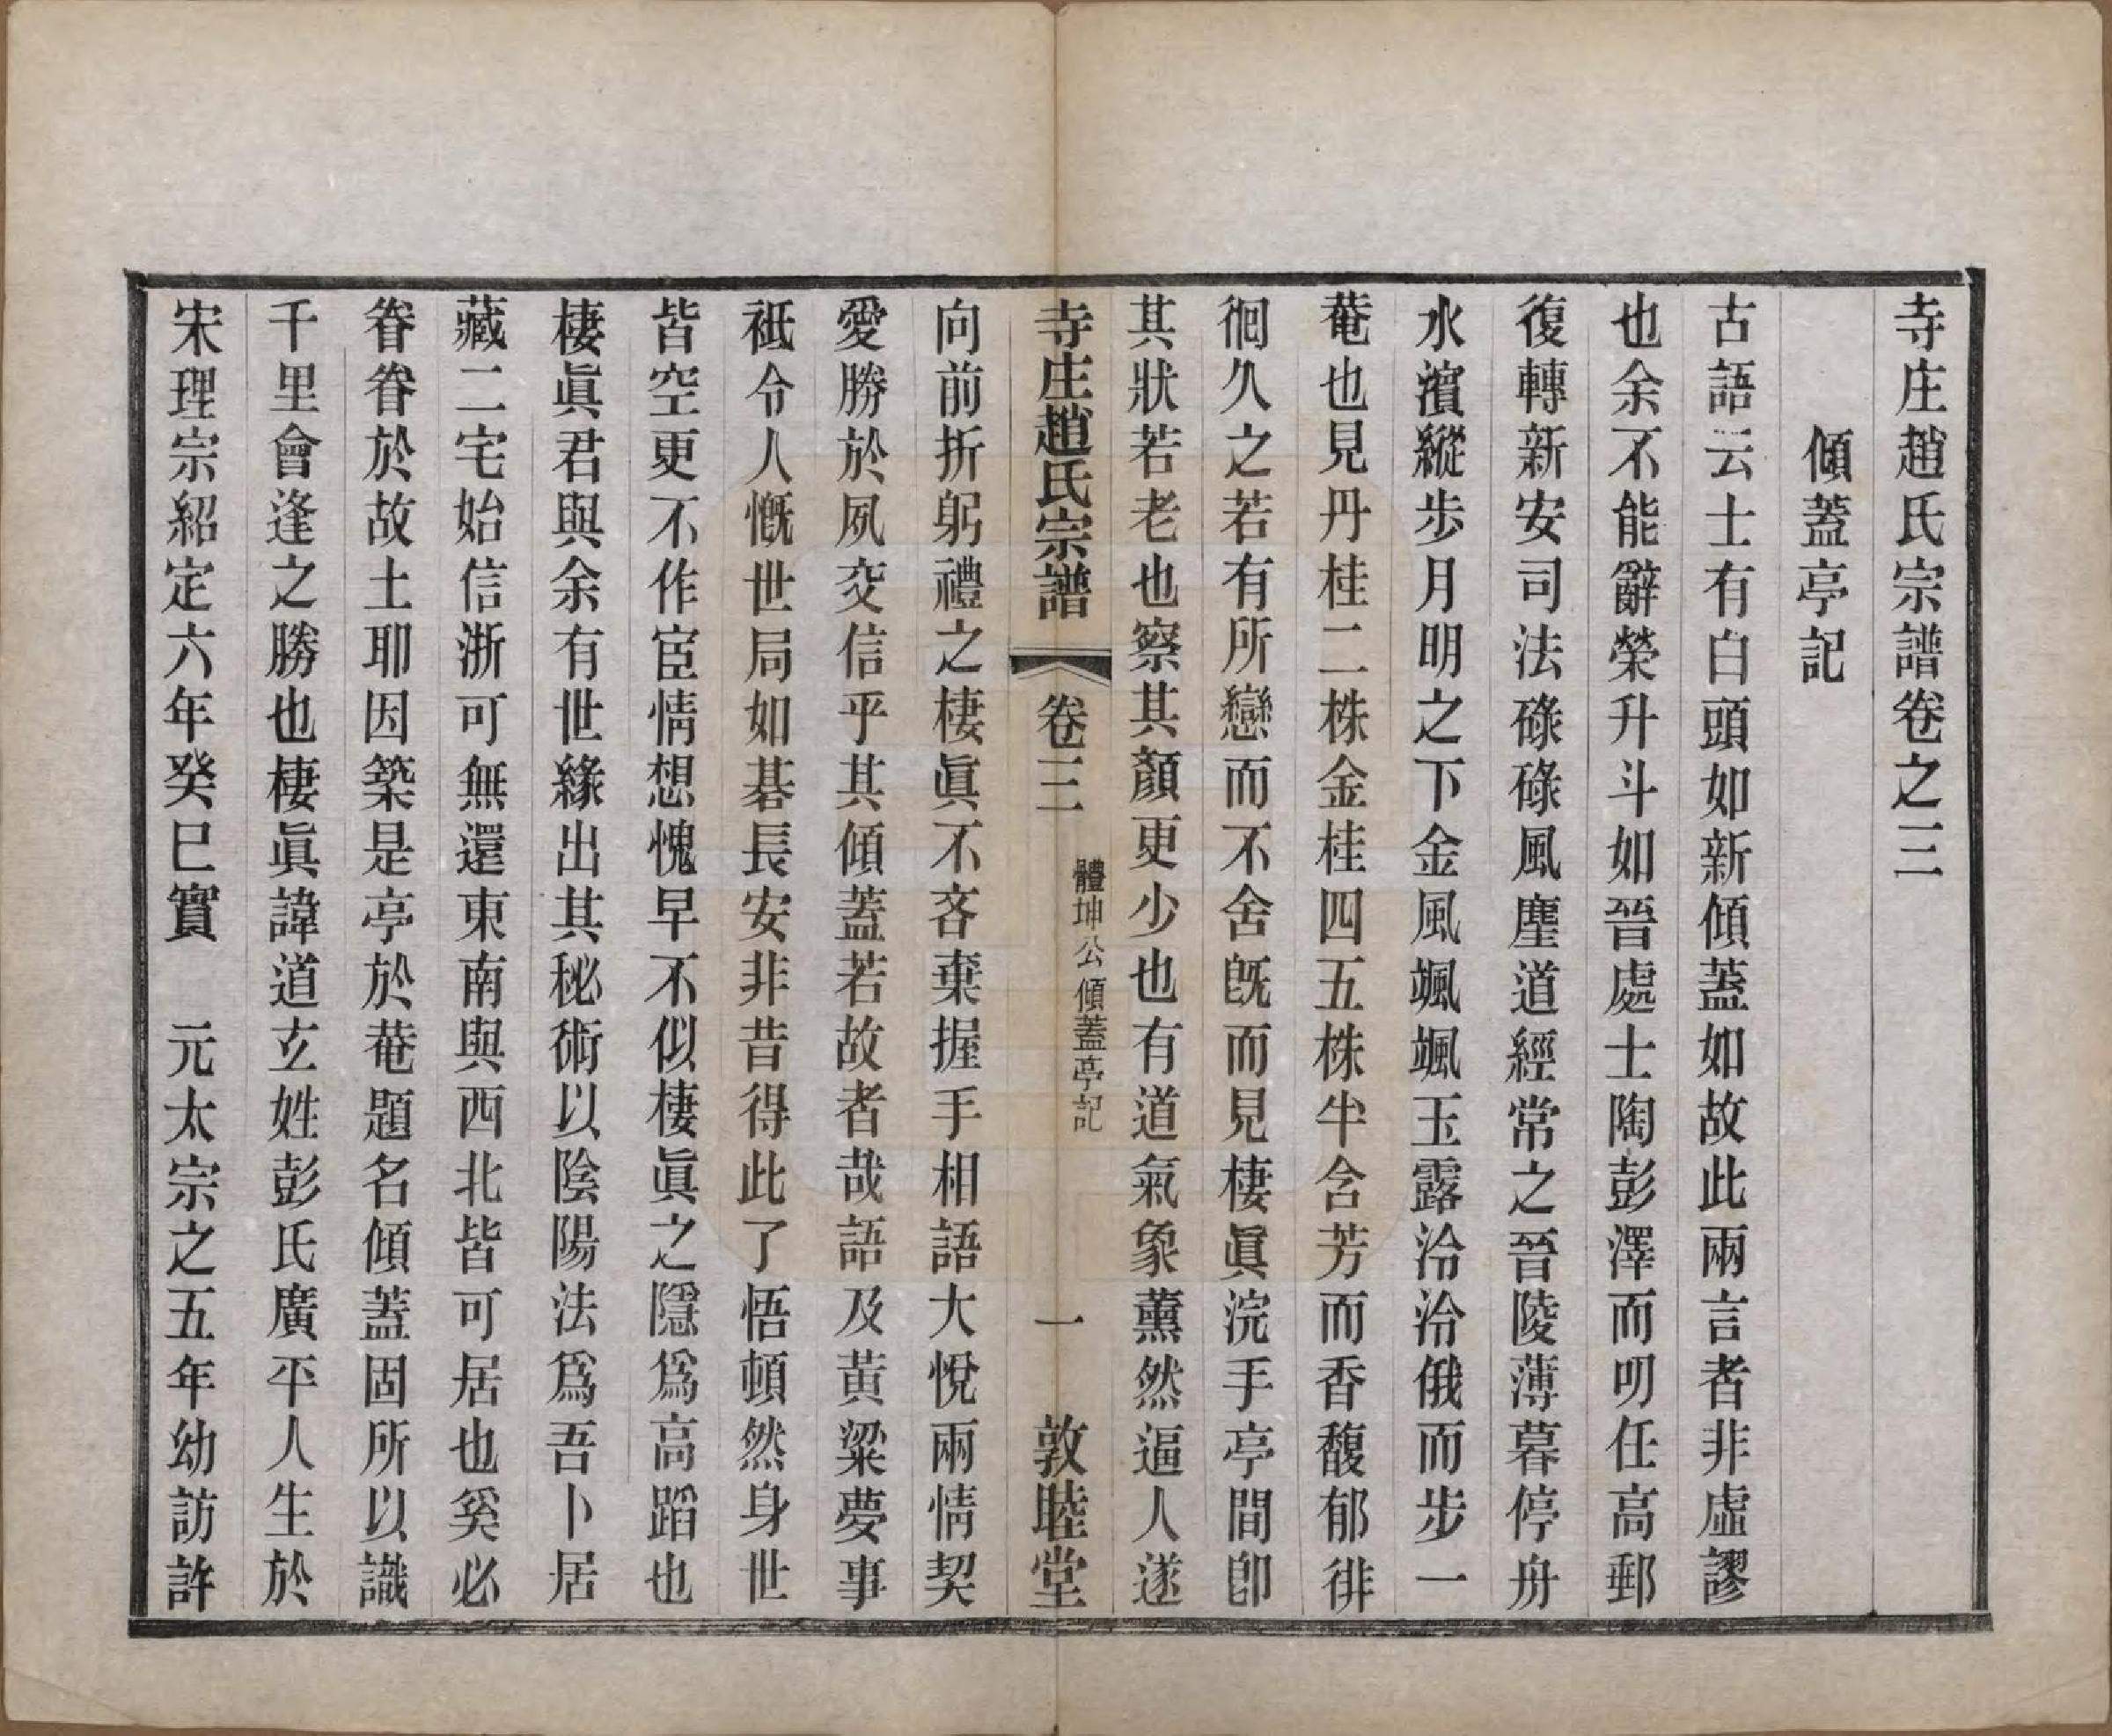 寺庄趙氏宗譜卷之三
傾蓋亭記
古語云士有白頭如新傾蓋如故此兩言者非虛謬
也余不能辭榮升斗如晉處士陶彭澤而叨任高郵
復轉新安司法碌碌風塵道經常之晉陵薄暮停舟
水濵縱步月明之下金風颯颯玉露泠泠俄而步一
菴也見丹桂二株金桂四五株半含芳而香馥郁徘
徊久之若有所戀而不舍旣而見棲眞浣手亭間卽
其狀若老也察其顏更少也有道氣象薰然逼人遂
寺庄趙氏宗譜
卷三
體坤公傾蓋亭記
一
敦睦堂
向前折躬禮之棲眞不吝棄握手相語大悅兩情契
愛勝於夙交信乎其傾蓋若故者哉語及黃粱夢事
祗令人慨世局如碁長安非昔得此了悟頓然身世
皆空更不作宦情想愧早不似棲眞之隱爲高蹈也
棲眞君與余有世緣出其秘術以陰陽法爲吾卜居
藏二宅始信浙可無還東南與西北皆可居也奚必
眷眷於故土耶因築是亭於菴題名傾蓋固所以識
千里會逢之勝也棲眞諱道玄姓彭氏廣平人生於
宋理宗紹定六年癸巳實　元太宗之五年幼訪許